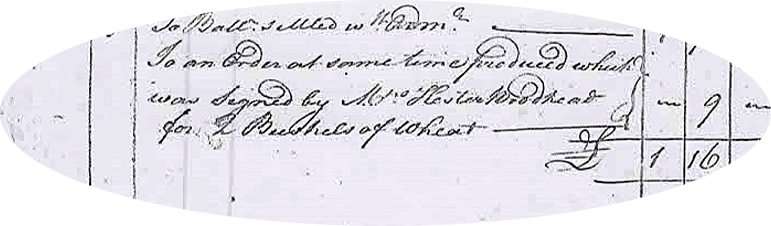 To Ballc. settled wth
To an Order at same time produced which
was Signed by Mrs Hester Brodhead " 9 "
for 2 Bushels of Wheat
1 16